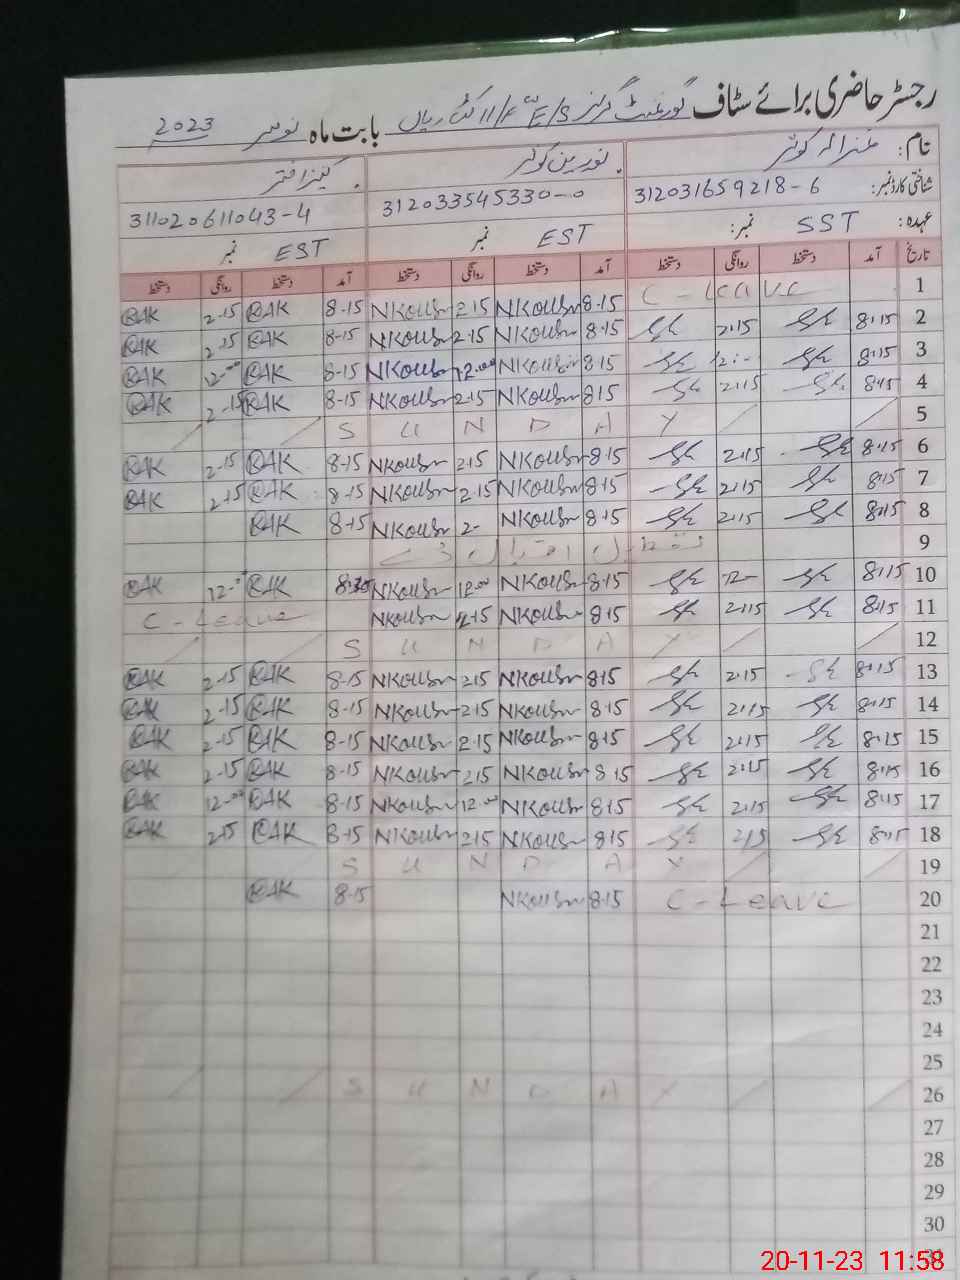 رجسٹر حاضری برائے سٹاف گورنمنٹ گرلز E/S بابت ماہ نومبر 2023
نام: غزالہ کوثر نورین کوثر
شناختی کارڈ نمبر: 312031659218-6 312033545330-0 311020611043-4
عہدہ: SST نمبر: EST نمبر EST نمبر
تاریخ آمد دستخط روانگی دستخط آمد دستخط روانگی دستخط آمد دستخط روانگی دستخط
1 C-Leave 8-15 NKousr 2-15 NKousr 8-15 RAK 2-15 RAK
2 8:15 2:15 8-15 NKousr 2-15 NKousr 8-15 RAK 2-15 RAK
3 8:15 12:- 8-15 NKousr 12-00 NKousr 8-15 RAK 12-00 RAK
4 8:15 2:15 8-15 NKousr 2-15 NKousr 8-15 RAK 2-15 RAK
5 S U N D A Y
6 8:15 2:15 8-15 NKousr 2-15 NKousr 8-15 RAK 2-15 RAK
7 8:15 2:15 8-15 NKousr 2-15 NKousr 8-15 RAK 2-15 RAK
8 8:15 2:15 8-15 NKousr 2- NKousr 8-15 RAK
9 تعطیل اقبال ڈے
10 8:15 12- 8-15 NKousr 12-00 NKousr RAK 12-00 RAK
11 8:15 2:15 8-15 NKousr 2-15 NKousr C-Leave
12 S U N D A Y
13 8:15 2:15 8-15 NKousr 2-15 NKousr 8-15 RAK 2-15 RAK
14 8:15 2:15 8-15 NKousr 2-15 NKousr 8-15 RAK 2-15 RAK
15 8:15 2:15 8-15 NKousr 2-15 NKousr 8-15 RAK 2-15 RAK
16 8:15 2:15 8-15 NKousr 2-15 NKousr 8-15 RAK 2-15 RAK
17 8:15 2:15 8-15 NKousr 12-00 NKousr 8-15 RAK 12-00 RAK
18 8:15 2:15 8-15 NKousr 2-15 NKousr 8-15 RAK 2-15 RAK
19 S U N D A Y
20 C-Leave 8-15 NKousr 8-15 RAK
21
22
23
24
25
26 S U N D A Y
27
28
29
30
31
20-11-23 11:58